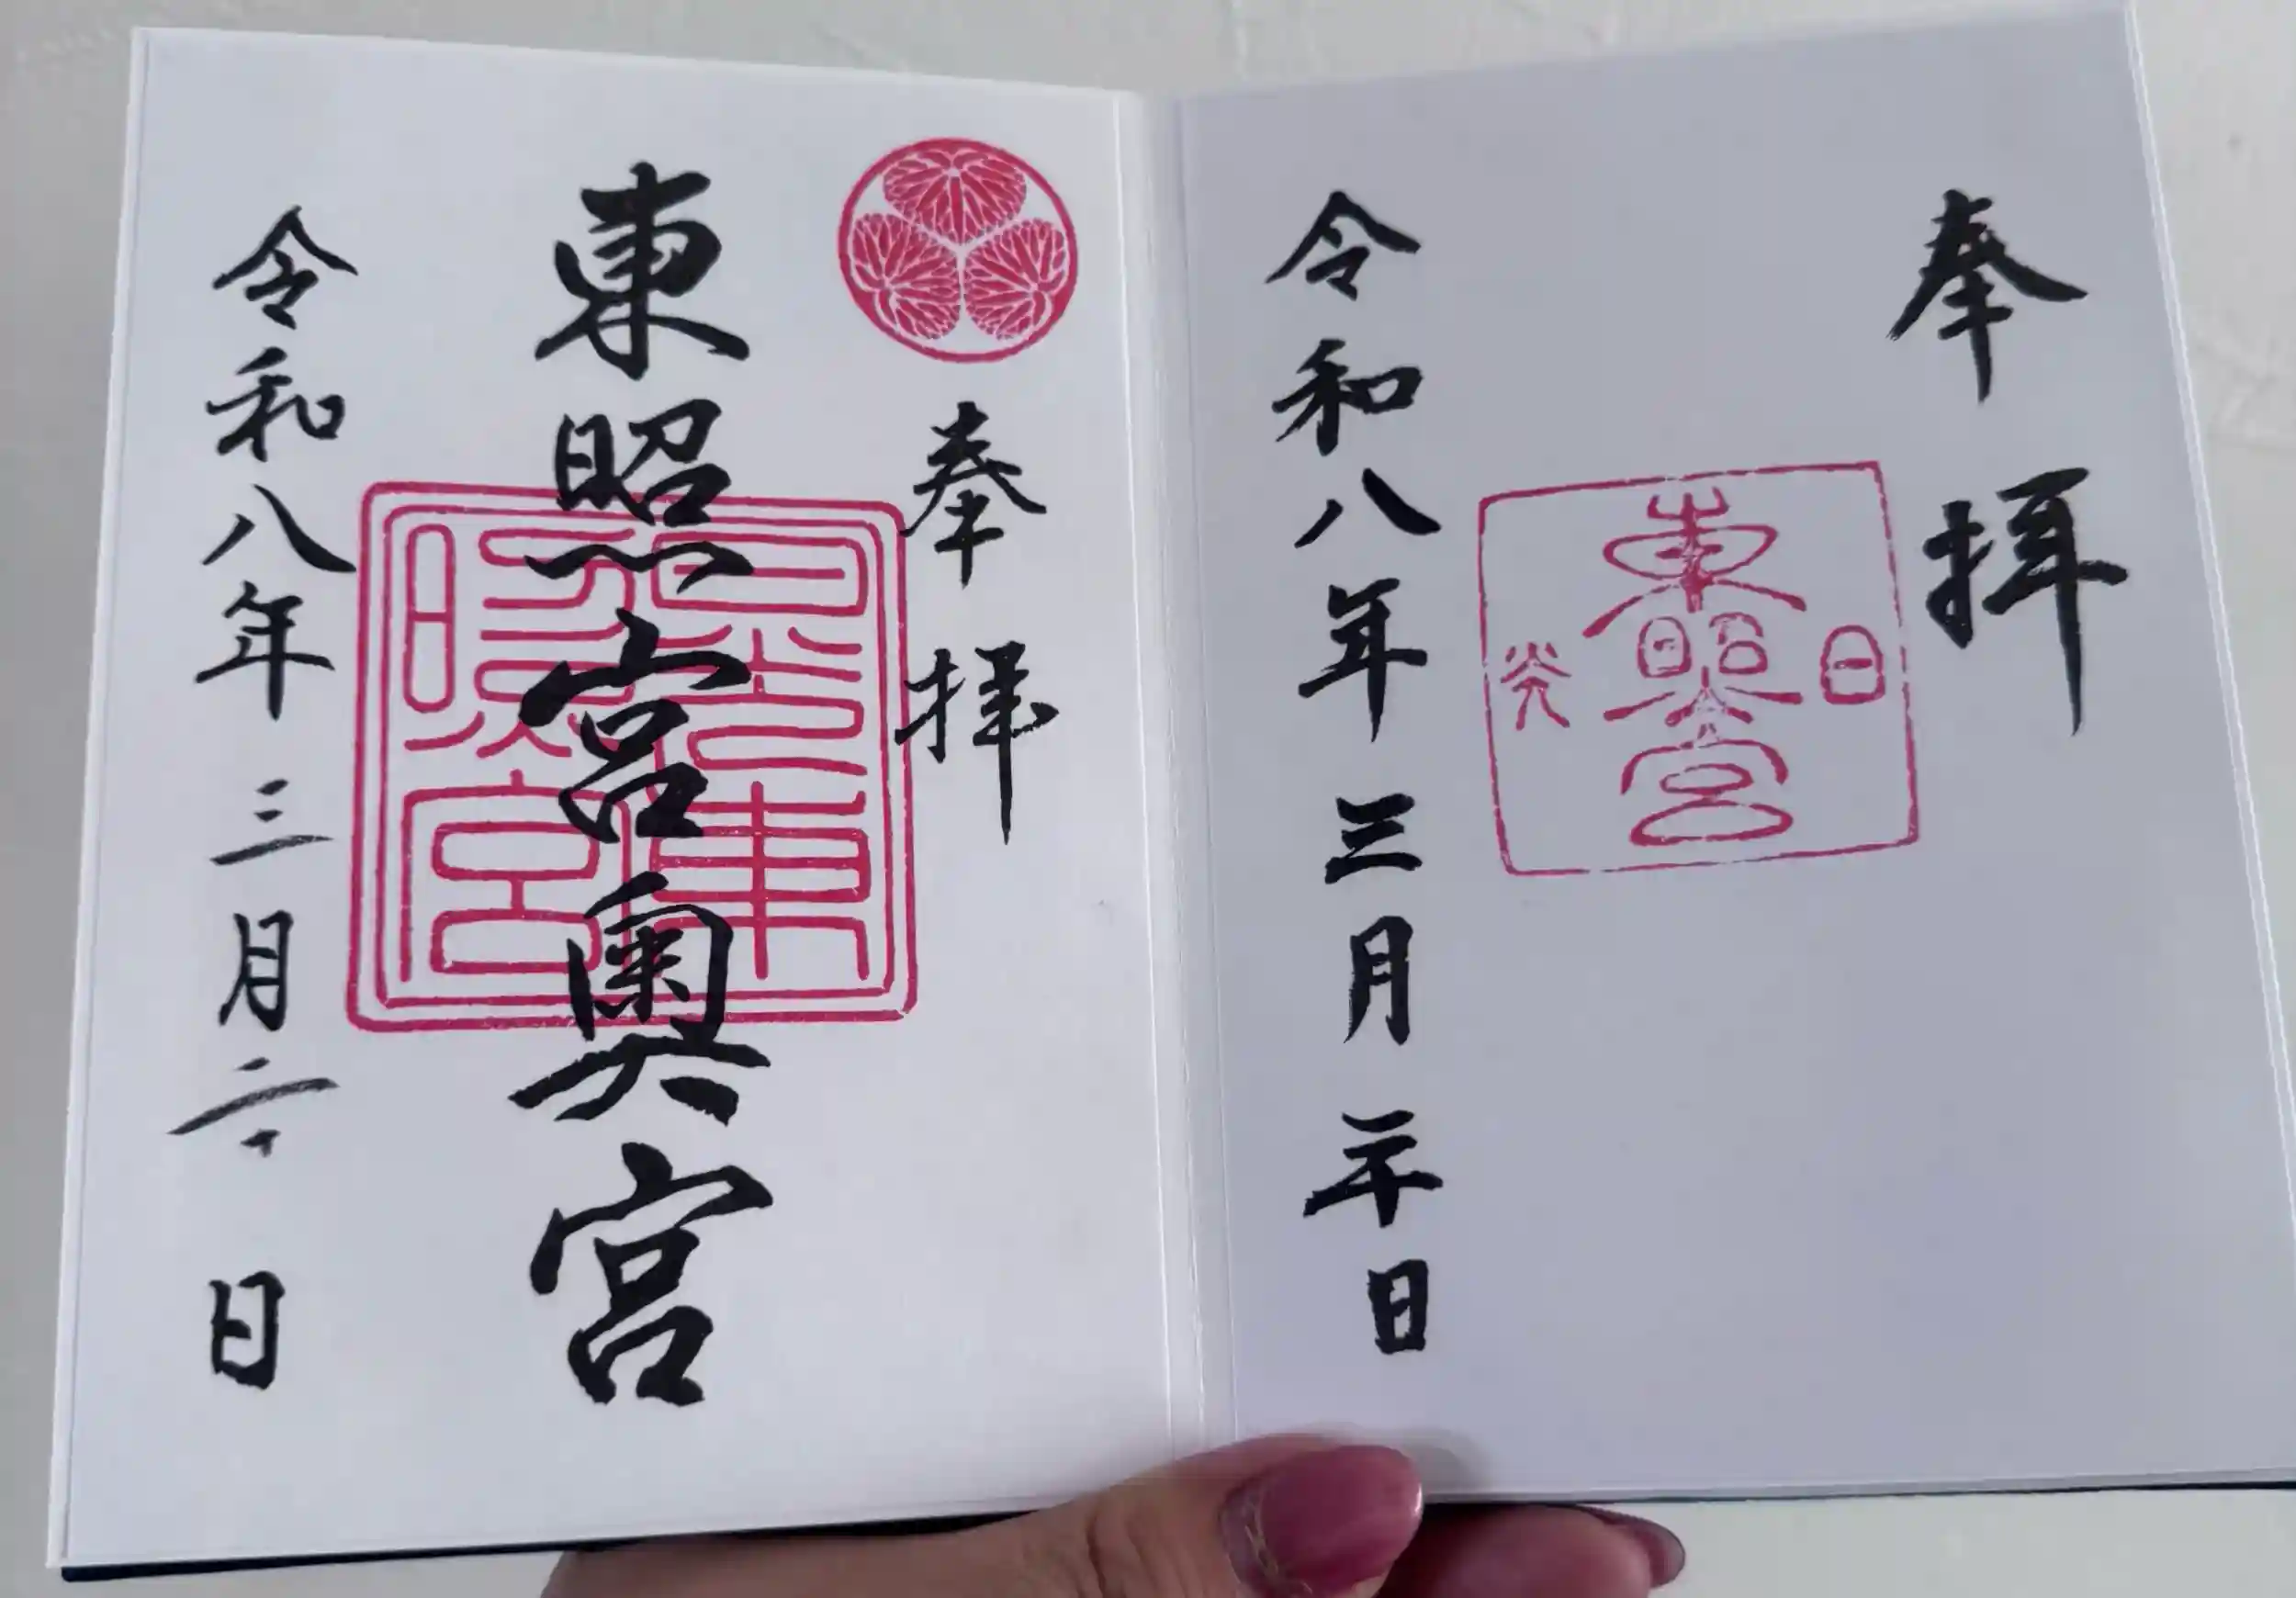 奉拝
日
東照宮
光
令和八年三月二十日
奉拝
東照宮奥宮
日光東
照宮
令和八年三月二十日